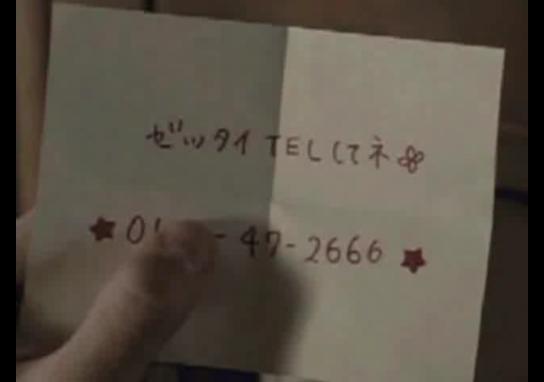 ゼッタイTELしてネ
★0 -47-2666★